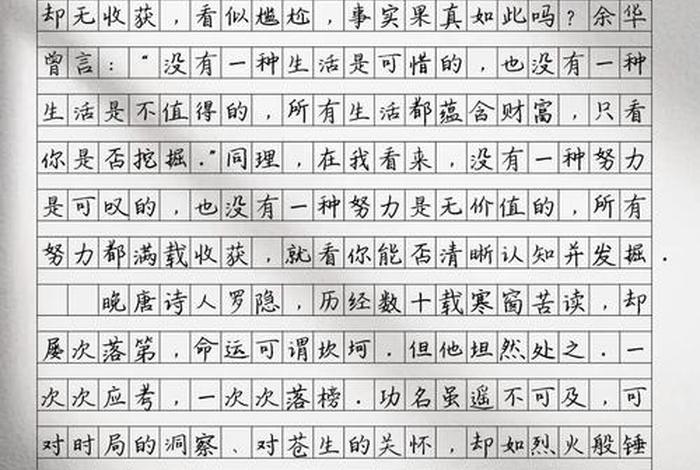 却无收获，看似尴尬，事实果真如此吗？余华
曾言："没有一种生活是可惜的，也没有一种
生活是不值得的，所有生活都蕴含财富，只看
你是否挖掘."同理，在我看来，没有一种努力
是可叹的，也没有一种努力是无价值的，所有
努力都满载收获，就看你能否清晰认知并发掘.
晚唐诗人罗隐，历经数十载寒窗苦读，却
屡次落第，命运可谓坎坷.但他坦然处之.一
次次应考，一次次落榜.功名虽遥不可及，可
对时局的洞察、对苍生的关怀，却如烈火般锤